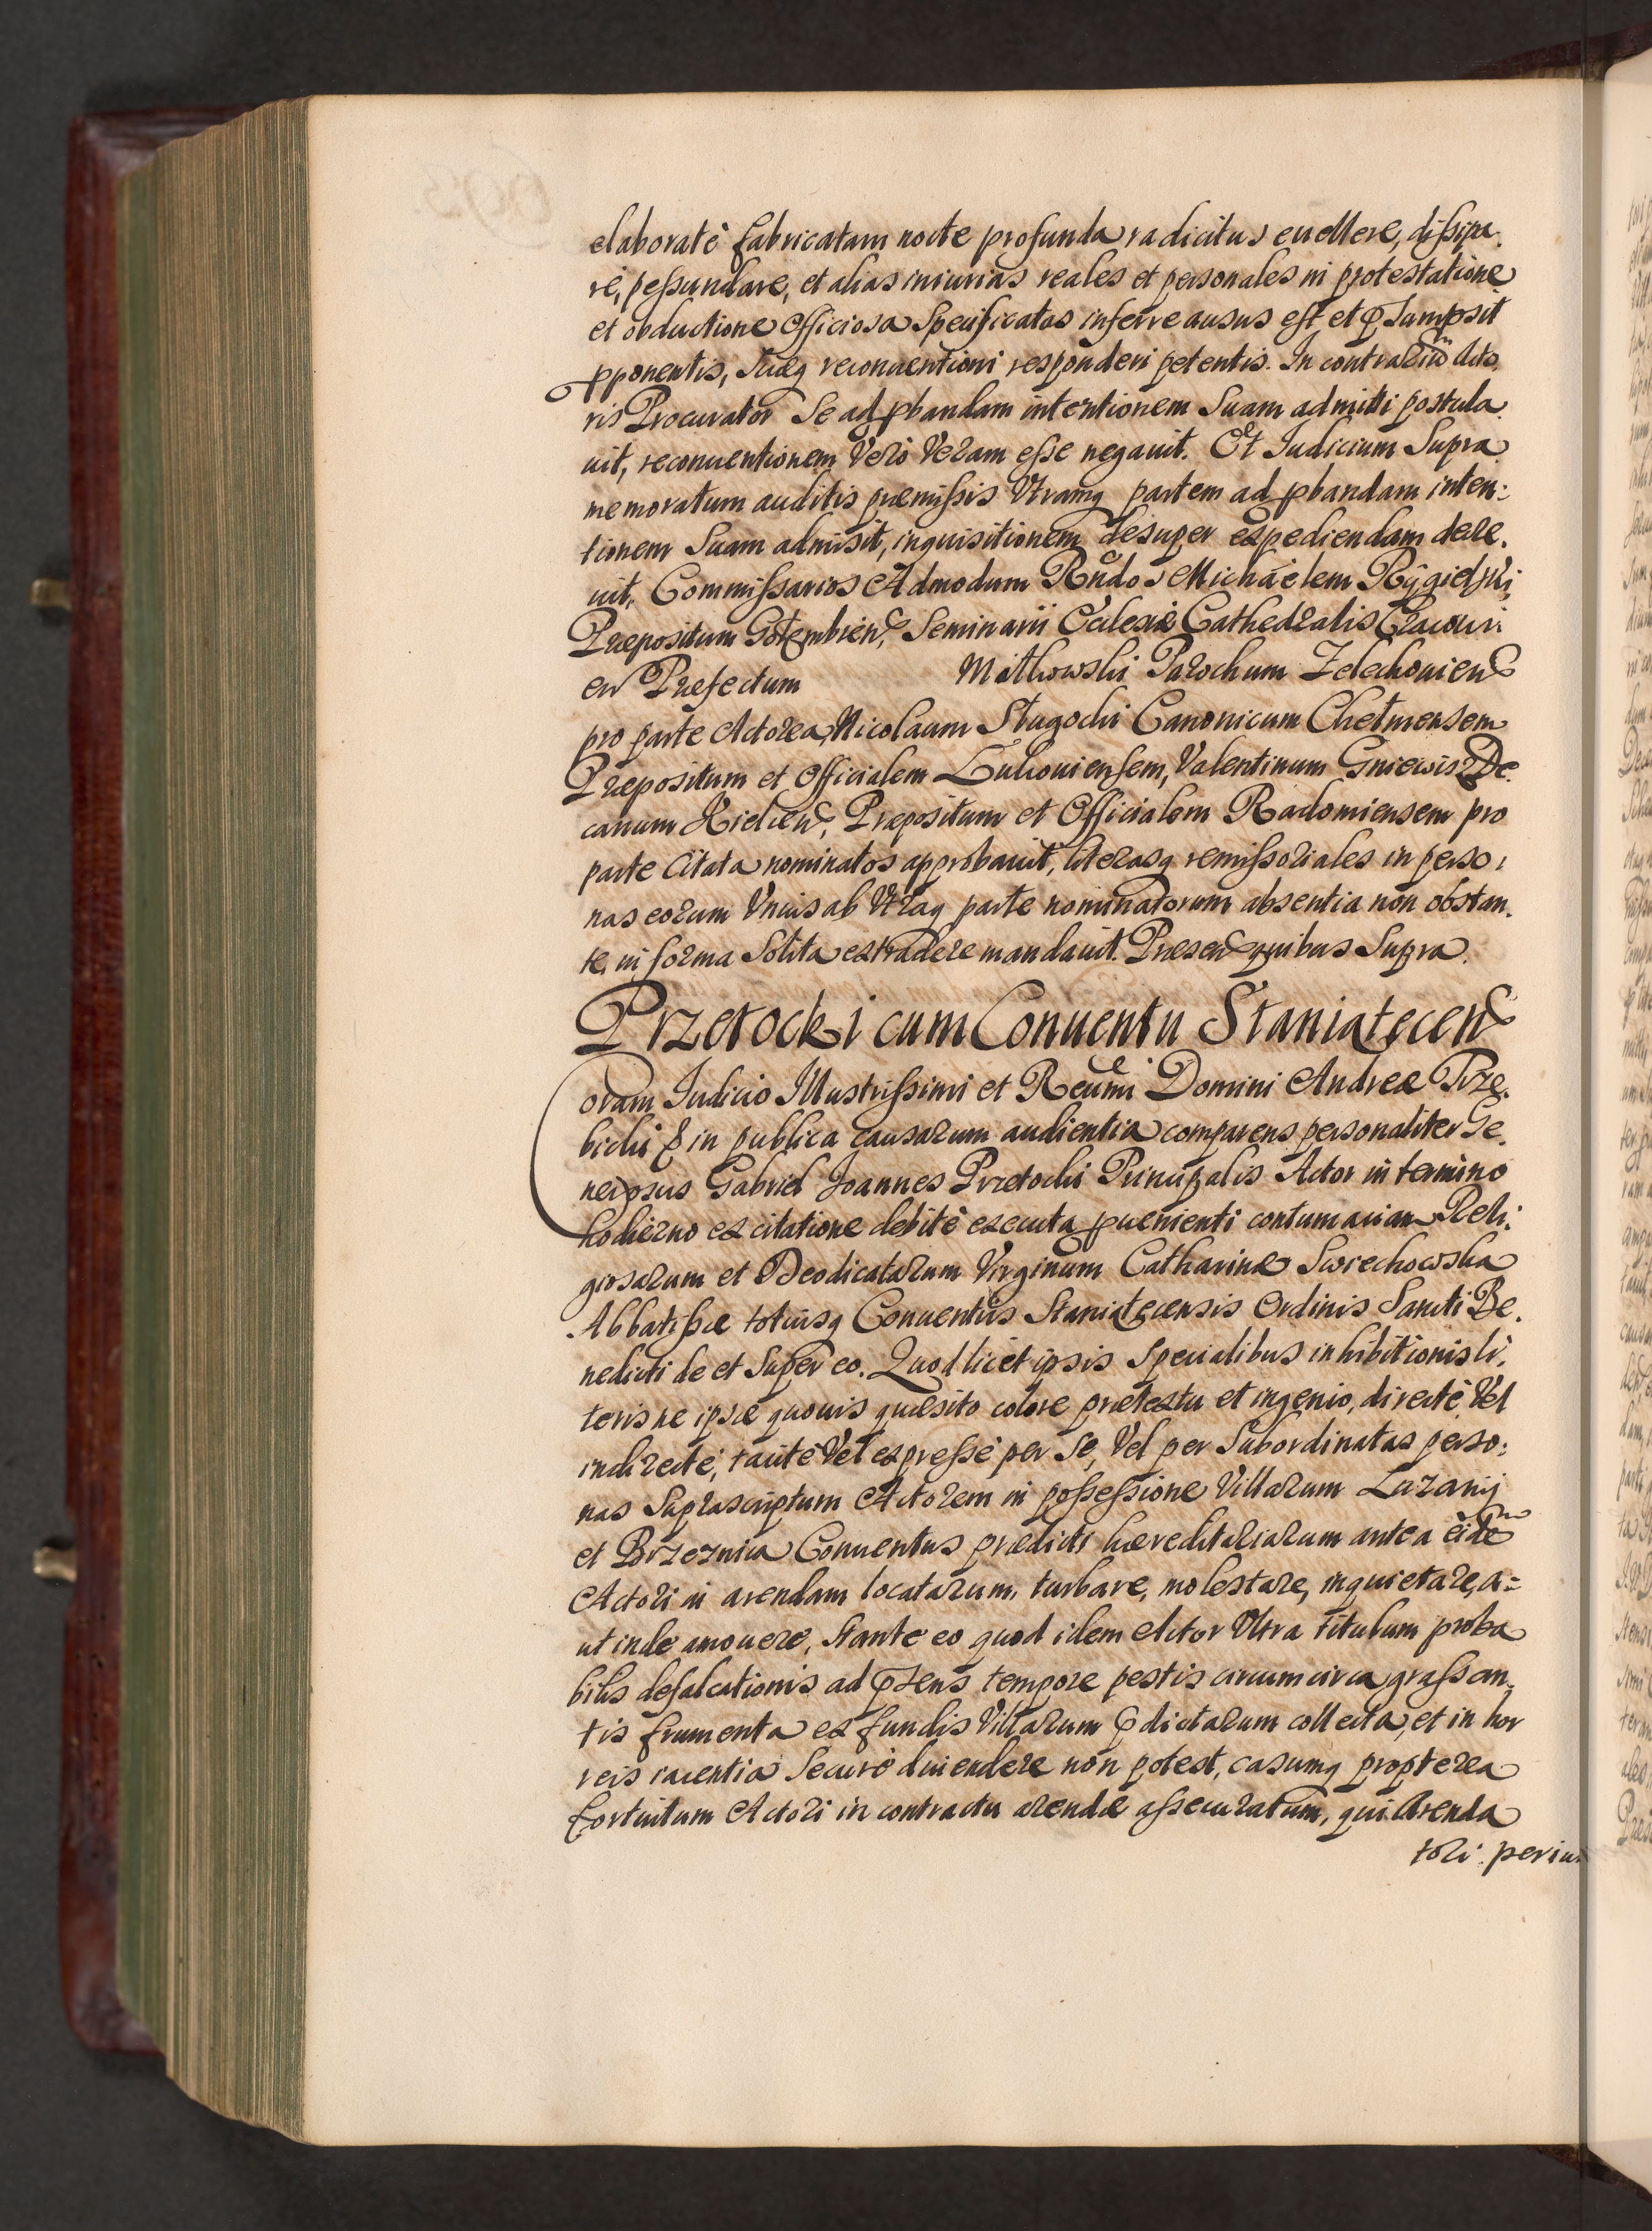 elaboratè fabricatam nocte profunda radicitus euellere, dißipa.
re, peßundare, et alias iniurias reales et personales in protestatione
et obductione officiosa Specificatas inferre ausus est et p̃sumpsit
pponentis, suæq reconuentioni responderi petentis. In contrariũ Acto.
ris Procurator Se ad pbandam intentionem Suam admitti postula.
uit, reconuentionem Verò Veram eße negauit. Et Iudicium Supra
memoratum auditis præmißis Vtramq partem ad pbandam inten:
tionem Suam admisit, inquisitionem desuper expediendam decre.
uit, Commißarios Admodum Rñdos Michaëlem Rÿgielski
Præpositum Gołembien, Seminarii Ecclesiæ Cathedralis Cracoui
en Præfectum Mitkowski Parochum Zelechouien
pro parte Actorea, Nicolaum Stugocki Canonicum Chełmensem
Præpositum et Officialem Lukouiensem, Valentinum Gniewisz De.
canum Kielcen, Præpositum et Officialem Radomiensem pro
parte Citata nominatos approbauit, literasq remißoriales in perso:
nas eorum Vnius ab Vtraq parte nominatorum absentia non obstan.
te, in forma Solita extradere mandauit. Præsen quibus Supra.
Przetocki cum Conuentu Staniątecen
Coram Iudicio Illustrißimi et Reũmi Domini Andreæ Trze.
bicki & in publica causarum audientia comparens personaliter Ge.
nerosus Gabriel Joannes Przetocki Principalis Actor in termino
hodierno ex citatione debitè executa puenienti contumaciam Reli:
giosarum et Deodicatarum Virginum Catharinæ Swiechowska
Abbatißæ totiusq Conuentus Staniątecensis Ordinis Sancti Be.
nedicti de et Super eo. Quod licet ipsis Specialibus inhibitionis li.
teris ne ipsæ quouis quæsito colore prætextu et ingenio, directè Vel
indirectè, tacitè Vel expreßè per Se, Vel per Subordinatas perso:
nas Suprascriptum Actorem in poßeßione Villarum Lazany
et Brzeznica Conuentus prædicti hæreditariarum antea eidẽ
Actori in arendam locatarum, turbare, molestare, inquietare, a=
ut inde amouere, Stante eo quod idem Actor Vltra titulum proba
bilis defalcationis ad p̃sens tempore pestis circumcirca graßan.
tis frumenta ex fundis Villarum p̃dictarum collecta, et in hor
reis iacentia Securè diuendere non potest, casumq propterea
fortuitum Actori in contractu arendæ aßecuratum, qui Arenda
tori pericu